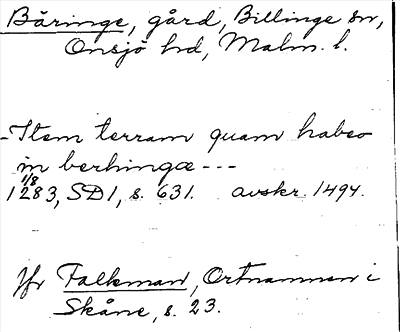 Bäringe, gård, Billinge sn,
Onsjö hd, Malm. l.
-Item terram quam habeo
in berhingæ ---
1/8
1283, SD1, s. 631. avskr. 1494.
Jfr Falkman, Ortnamnen i
Skåne, s. 23.